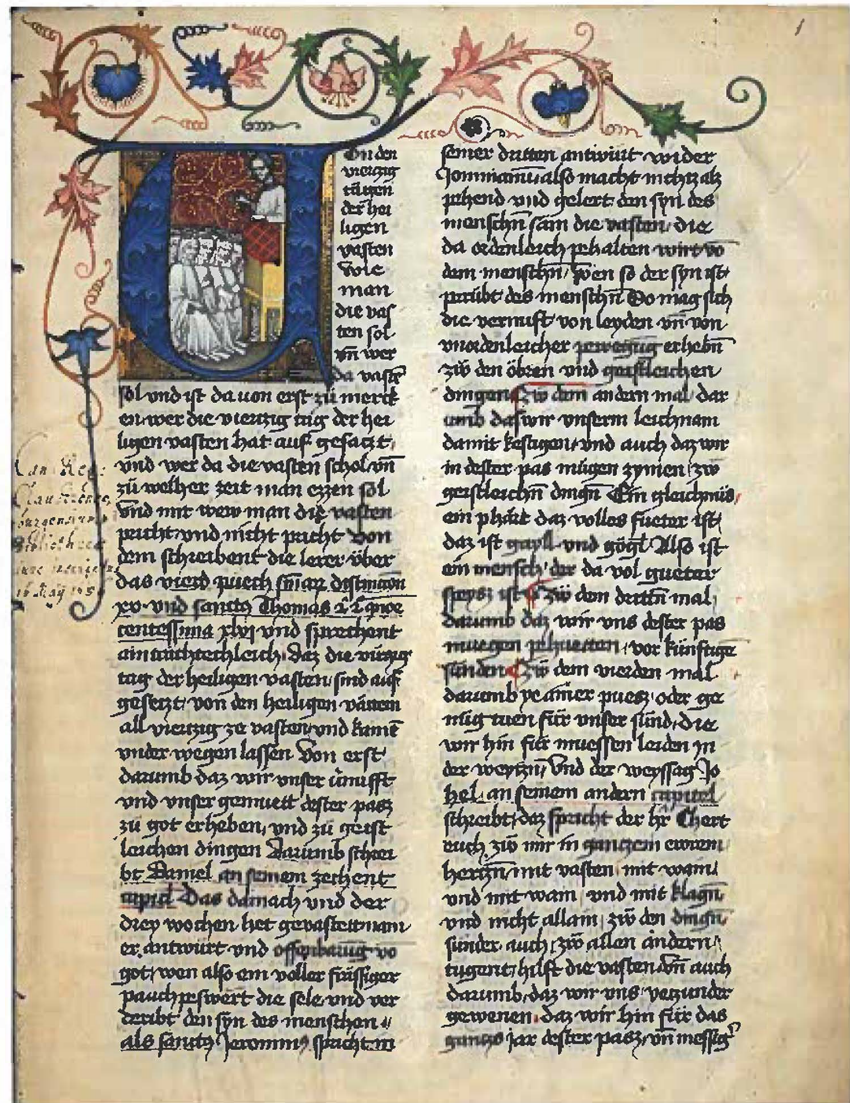 1
Von den
vierzig
tagen
der hei
ligen
vasten
wie
man
die vas
ten sol
vn̄ wer
da vastē
sol vnd ist da von erst zů merck
en wer die vierzig tag der hei
ligen vasten hat auf gesaczt
vnd wer da die vasten schol vn̄
zů welher zeit man ezzen sol
vnd mit wew man die vasten
pricht vnd nicht pricht Von
dem schreibent die lerer über
das vierd puech
xv. vnd sanctus Thomas
centessima xlvi vnd sprechent
ainträchtechleich daz die vierzig
tag der heiligen vasten sind auf
gesetzt von den heiligen vätern
all vierzig ze vasten vnd kainē
vnder wegen lassen Von erst
darumb daz wir vnser vernufft
vnd vnser gemuett dester pasz
zů got erheben vnd zů geist
leichen dingen Darumb schrei
bt Daniel an seinem zechent
capitel Das dainach vnd der
drey wochen het gevastett nam
er antwürt vnd offenbarūg vō
got wen also ein voller frässiger
pauch peswërt die sele vnd ver
deribt den syn des menschen
als sanctus Jeronimus spricht in
seiner dritten antwürt wider
Jouinianū also macht nichtz als
gelert den syn des
menschn̄ sam die vasten die
da ordenleich gehalten wirt vō
dem menschn̄ wen so der syn ist
geübt des menschn̄ So mag sich
die vernuft von leyden vn̄ von
vnordenleicher pewegūg erhebn̄
zů den öbren vnd geistleichen
dingen Zw dem andern mal dar
umb das wir vnserm leichnam
damit kestigen vnd auch daz wir
in dester pas mügen zymen zw
geistleichn̄ dingn̄ Ein gleichnüs
ein phärt daz volles fueter ist
daz ist gayll vnd gögl Also ist
ein mensch der da vol gueter
speys ist Zw dem drittn̄ mal
darumb daz wir vns dester pas
muegen pehuetten vor künftigē
sünden Zw dem vierden mal
darumb ye ainer puesz oder ge
nüg tuen für vnser sünd die
wir hin für muessen leiden in
der weyczn̄ Vnd der weyssag Jo
hel an seinem andern capitel
schreibt daz spricht der hr̄ Chert
euch zw mir in ganczem ewrem
herczn̄ mit vasten mit wain
vnd mit wain vnd mit klagn̄
vnd nicht allain zw den dingn̄
sünder auch zw allen andern
tugent hilft die vasten vn̄ auch
darumb daz wir vns yeczunder
gewenen daz wir hin für das
gancz jar dester pasz vn̄ messig